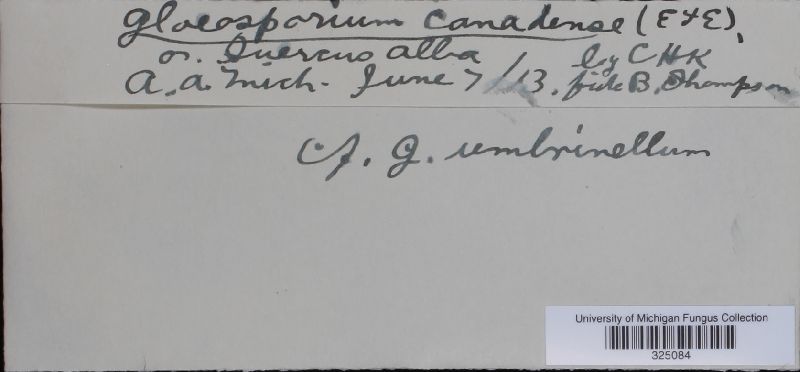 Gloeosporium canadense (E & E).
on Quercus alba by CHK
A.A. Mich. June 7/13. fide B. Thompson
cf. G. umbrinellum
University of Michigan Fungus Collection
325084